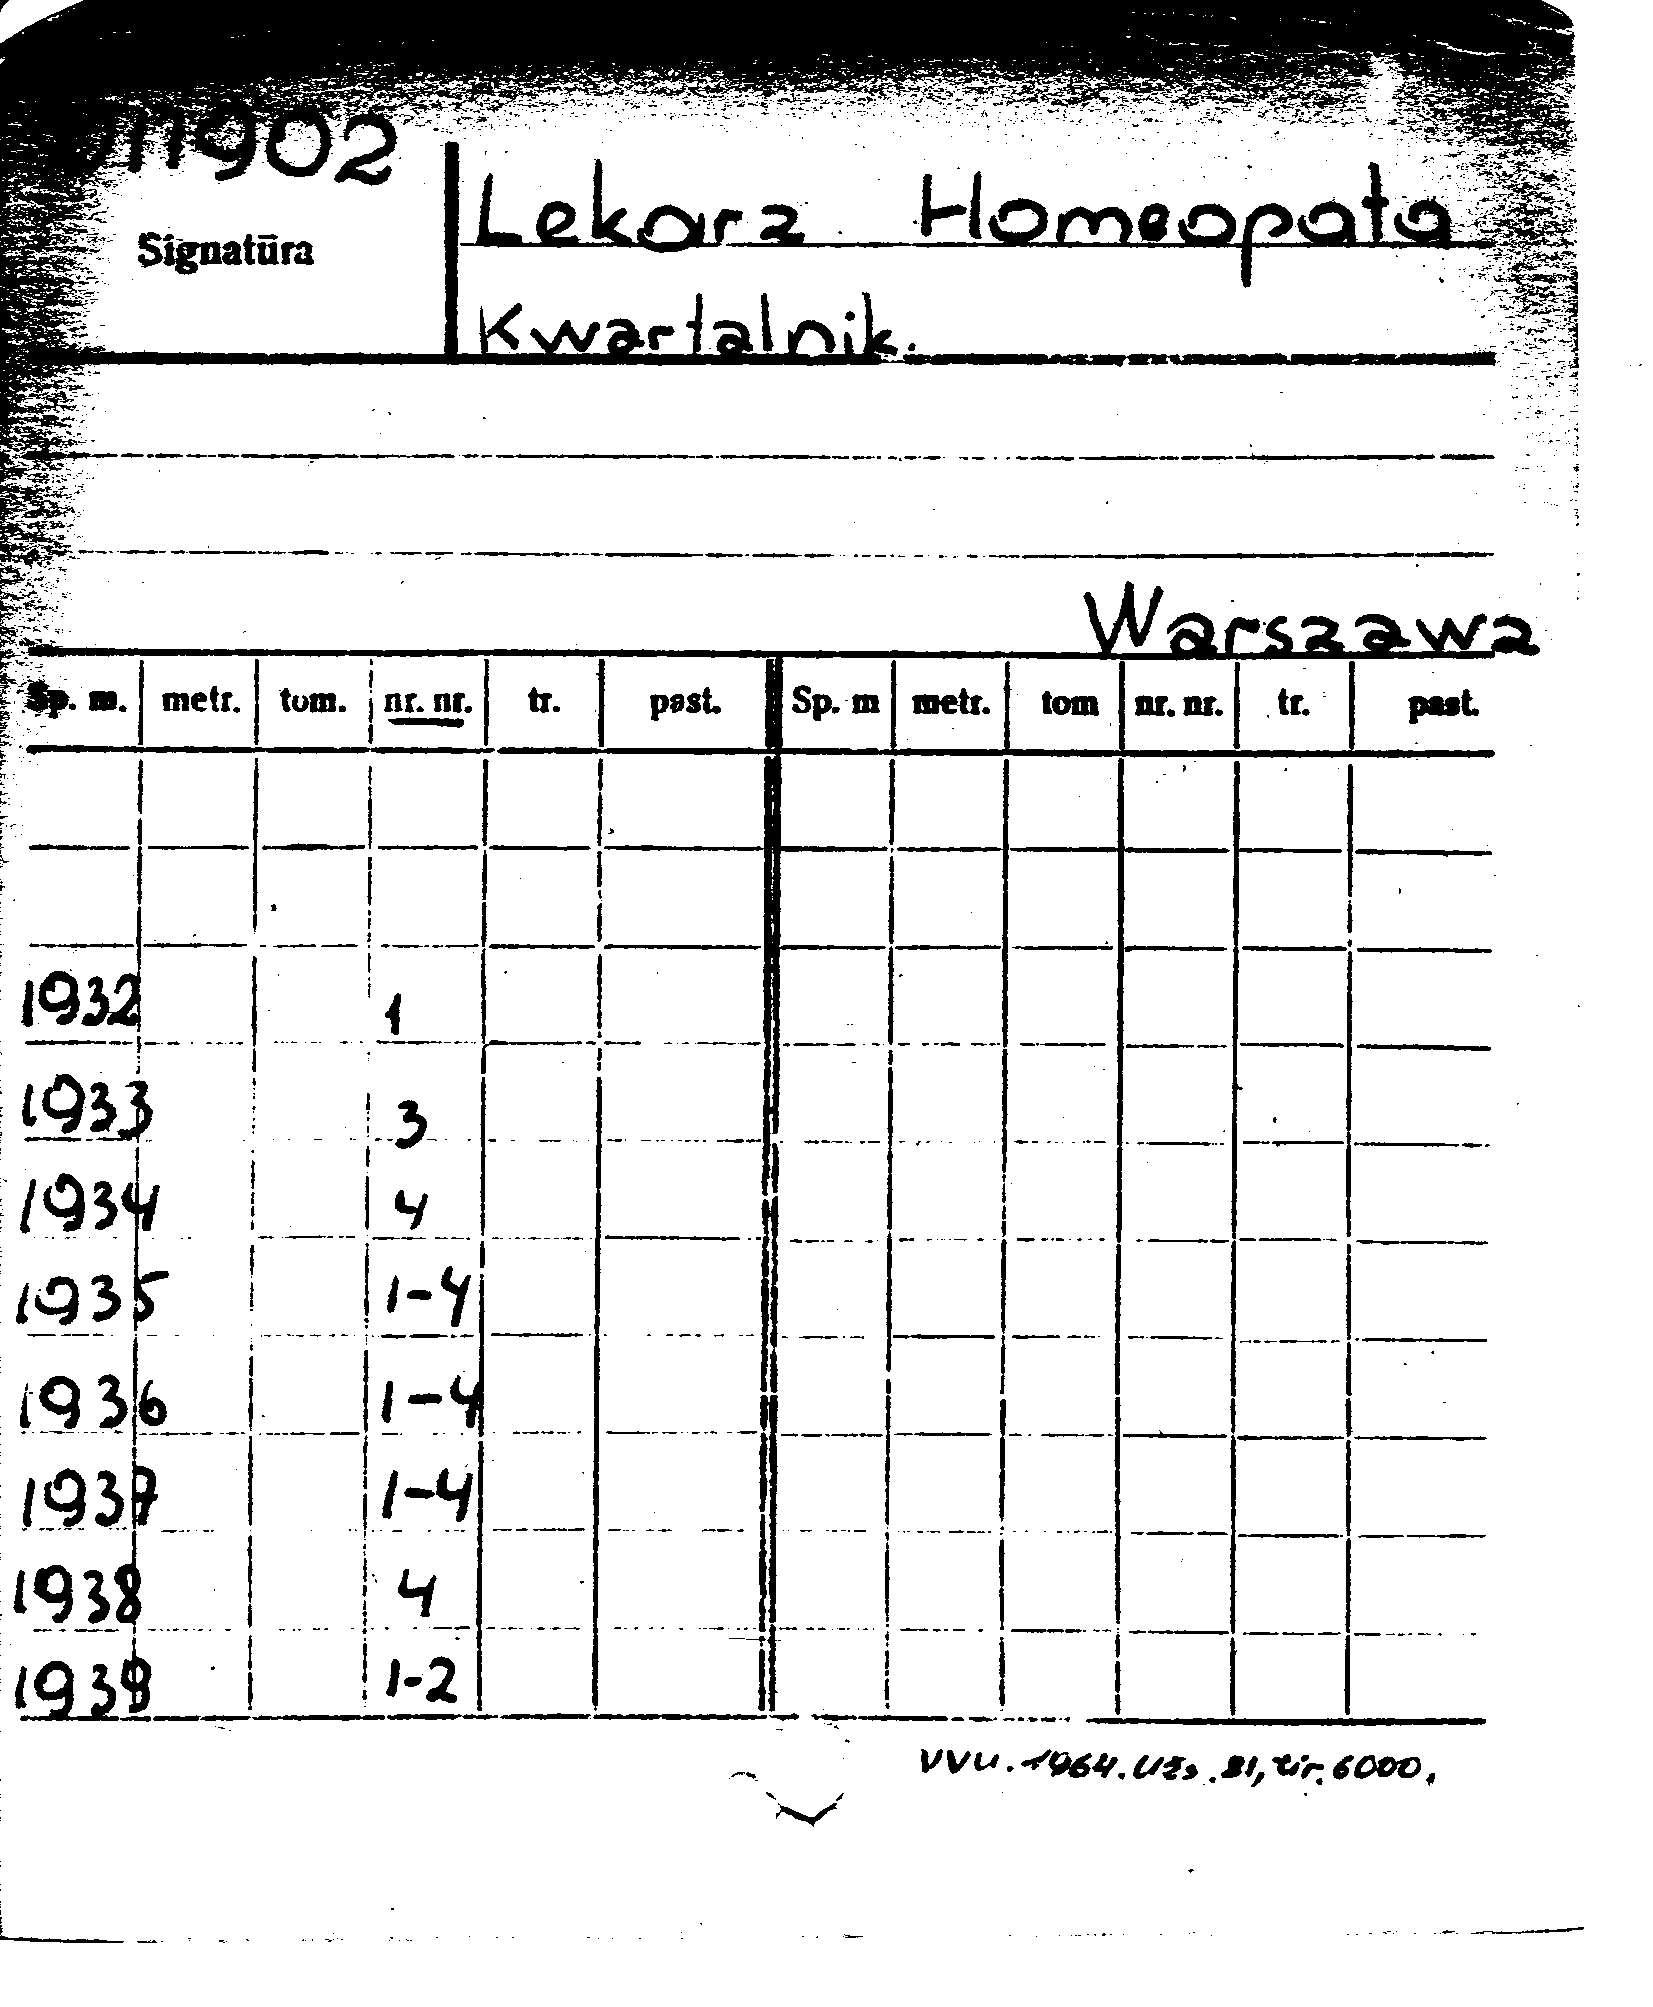 11902
Signatūra
Lekarz Homeopata
Kwartalnik.
Warszawa
Sp. m. metr. tom. nr. nr. tr. past. Sp. m metr. tom nr. nr. tr. past.
1932 1
1933 3
1934 4
1935 1-4
1936 1-4
1937 1-4
1938 4
1939 1-2
VVU. 1964. Užs. 81, tir. 6000.